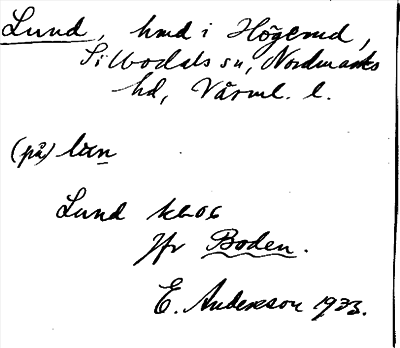 Lund, hmd i Högerud,
Silbodals sn, Nordmarks
hd, Värml. l.
(på) lun
Lund
Jfr Boden.
E. Andersson 1933.